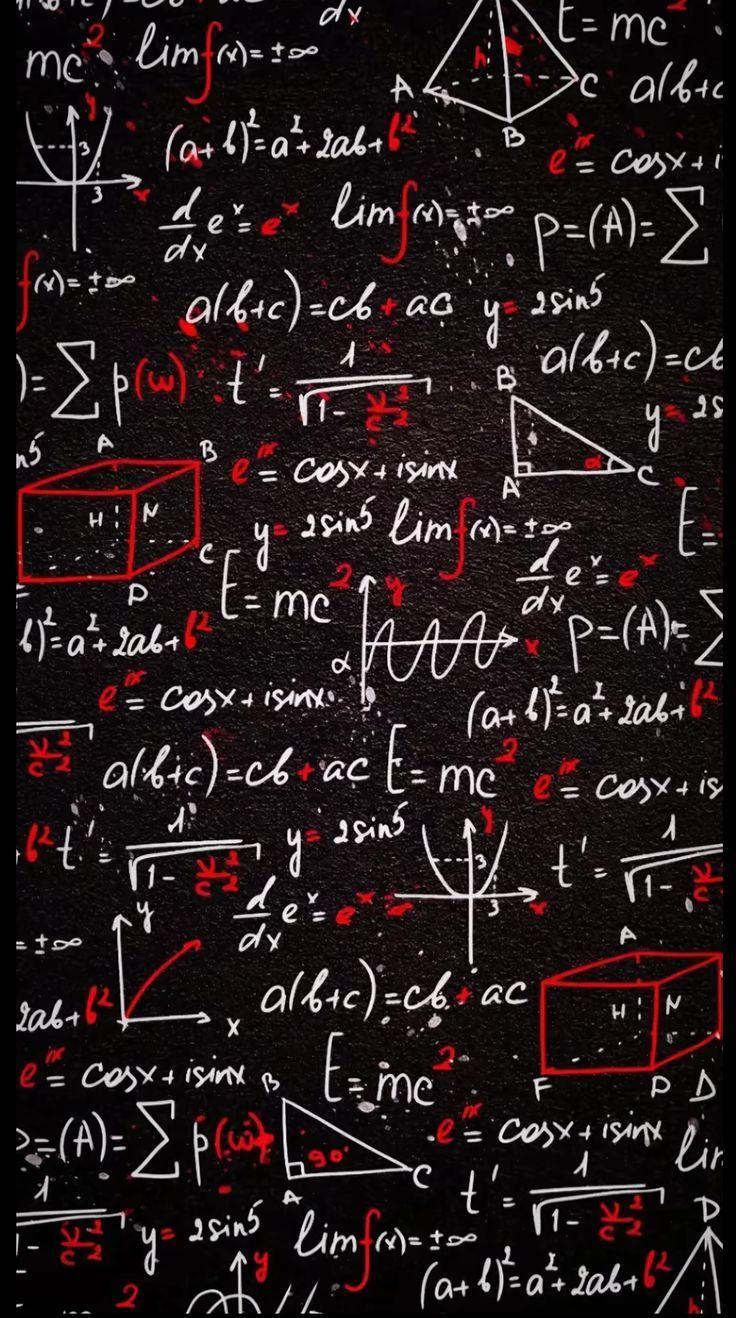 dx
mc² lim f(x)=±∞ E=mc²
A h C a(b+c
B
y 3 (a+b)²=a²+2ab+b² eⁱˣ=cosx+i
3 x d/dx eˣ=eˣ lim f(x)=±∞ p=(A)=∑
f(x)=±∞ a(b+c)=cb+ac y=2sin5
)=∑p(w) t'=1/√1-v²/c² a(b+c)=cb
B y=2s
n5 A B eⁱˣ=cosx+isinx α A C
H N y=2sin5 lim f(x)=±∞ E=
C E=mc² d/dx eˣ=eˣ
D y
b)²=a²+2ab+b² α x p=(A)=∑
eⁱˣ=cosx+isinx (a+b)²=a²+2ab+b²
v²/c² a(b+c)=cb+ac E=mc² eⁱˣ=cosx+is
b² t'=1/√1-v²/c² y=2sin5 y 3 t'=1/√1-v²/c²
y d/dx eˣ=eˣ 3 x
=±∞ A
2ab+b² x a(b+c)=cb+ac H N
eⁱˣ=cosx+isinx E=mc² F D D
B
p=(A)=∑p(w) 90° eⁱˣ=cosx+isinx lim
A C t'=1/√1-v²/c²
1
1-v²/c² y=2sin5 lim f(x)=±∞ D
y (a+b)²=a²+2ab+b²
2 h